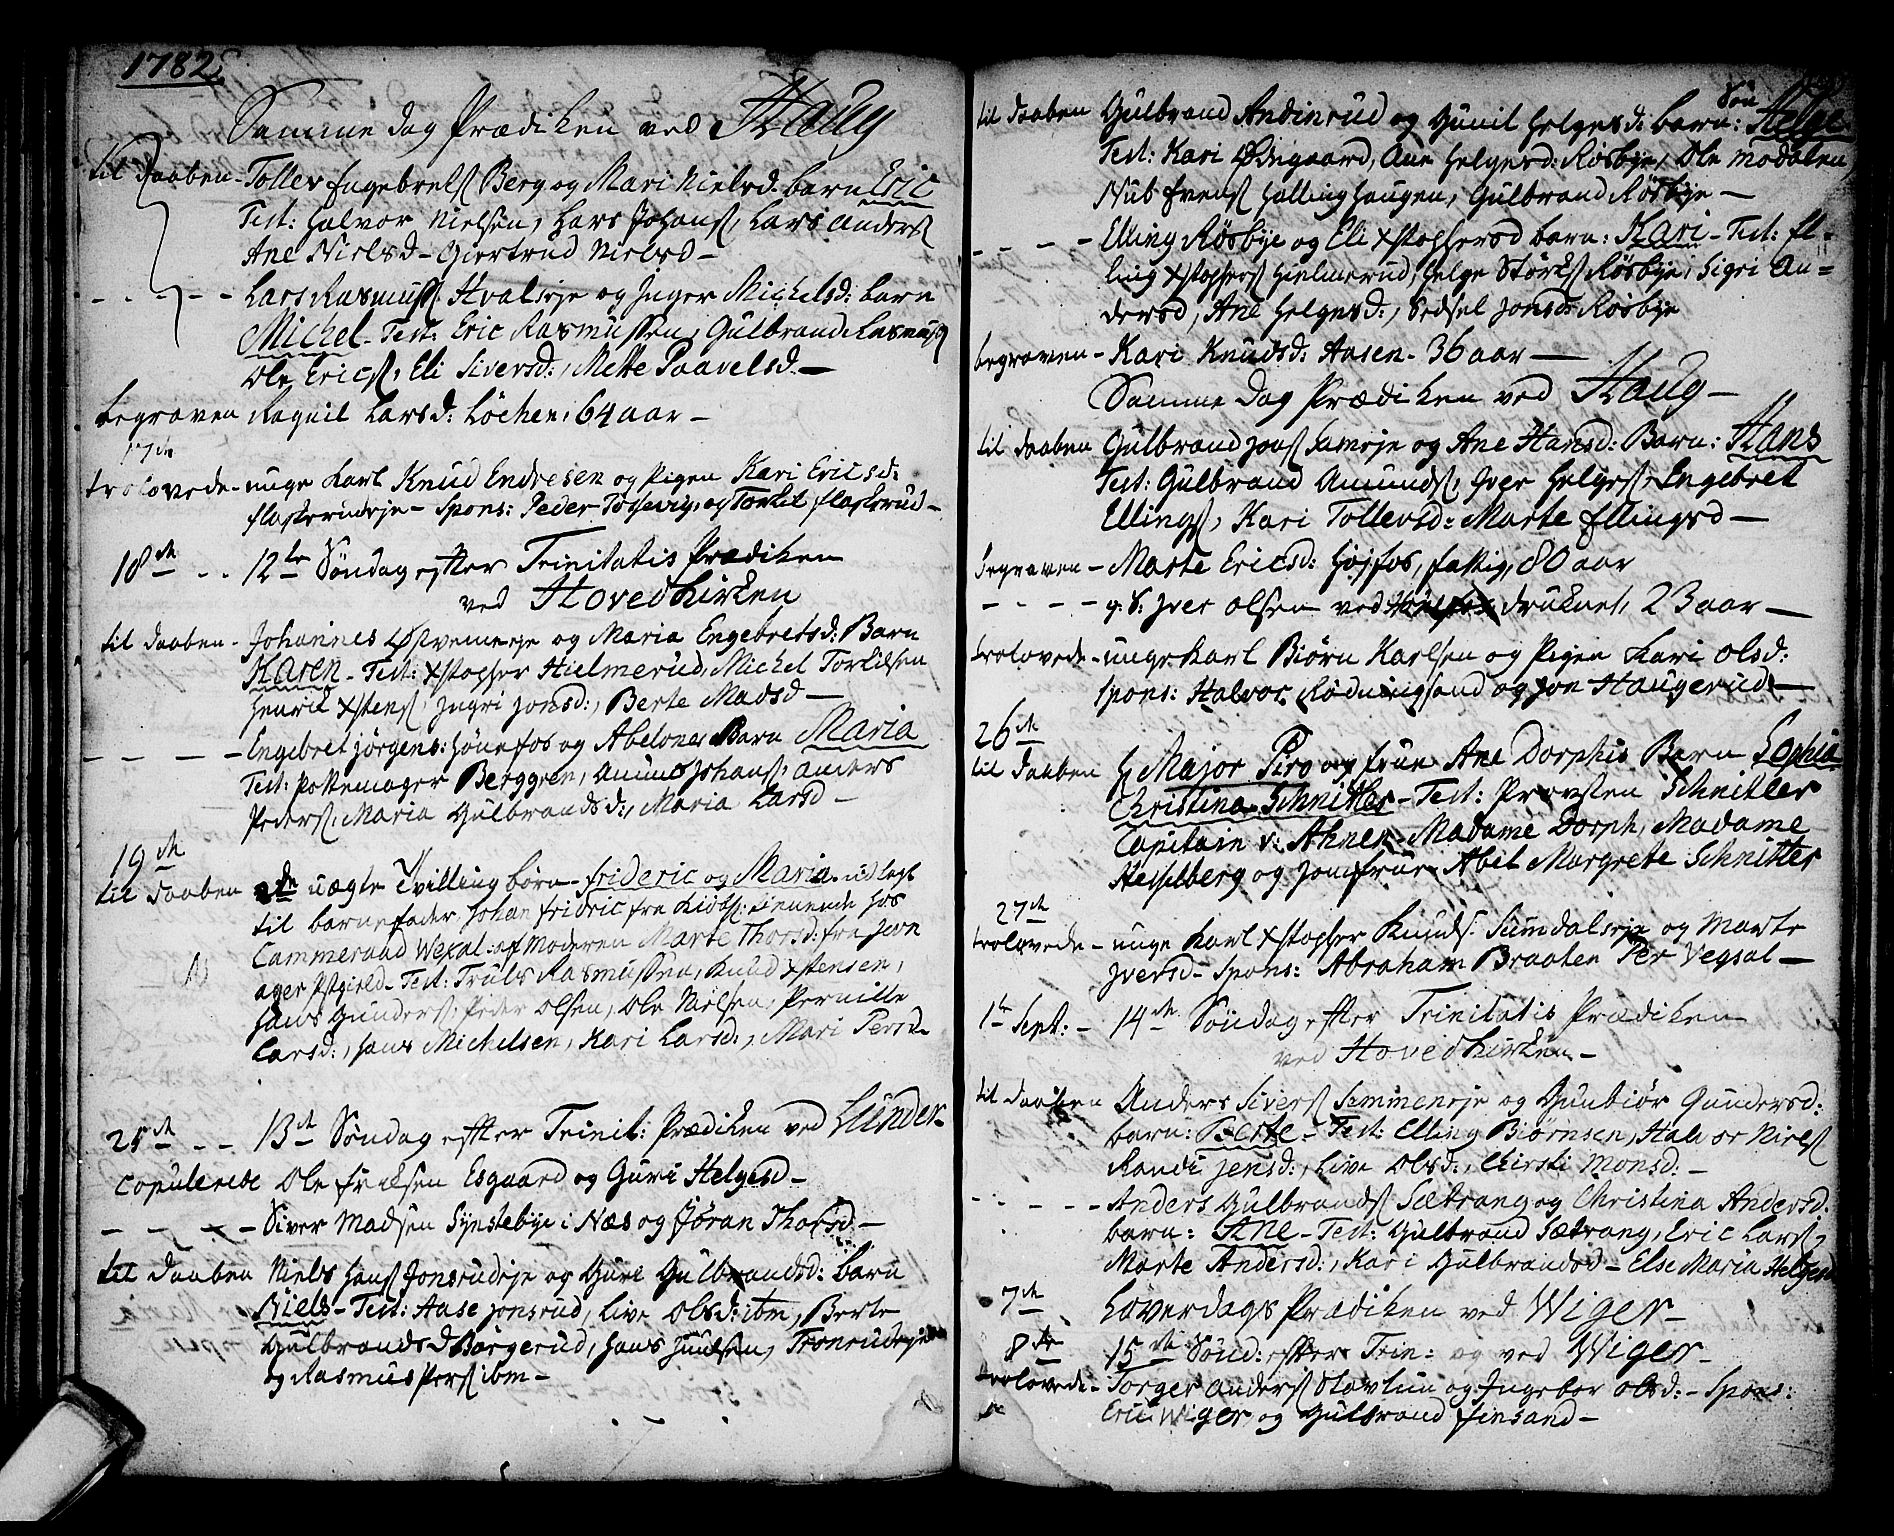 1782
Samme dag Prædiken ved Haug
til Daaben - Tollev Engebrets Berg og Mari Nielsd: barn Eric
Test: Halvor Nielsen, Lars Johans, Lars Anders
Ane Nielsd - Giertrud Nielsd -
- - - - - Lars Rasmuss Hvalseje og Inger Michelsd: barn
Michel - Test: Eric Rasmussen, Gulbrand Rasmuss
Ole Erics, Eli Siversd:, Mette Paavelsd -
begraven Ragnil Larsd: Løchen, 64 aar -
17de
trolovede - unge Karl Knud Endresen og Pigen Kari Ericsd:
flaskerudeje - Spons: Peder Tossevig, og Torkil flaskerud -
18de - - 12te Søndag efter Trinitatis Prædiken
ved Hovedkirken
til Daaben - Johannes Østvemeeje og Maria Engebretsd: Barn
Karen - Test: Xstopher Hielmerud, Michel Torkildsen
Henrik Xstens, Ingri Jonsd:, Berte Madsd -
- - - - Engebret Jørgens: Hønefos og Abelones Barn Maria
Test: Pottemager Berggren, Amund Johans, Anders
Peders, Maria Gulbrandsd:, Maria Larsd -
19de
til Daaben 2de uægte Tvilling børn - Frideric og Maria - udlagt
til barnefader Johan Fridric fra Kiøbh: tienende hos
Cammeraad Wexal: af Moderen Marte Thorsd: fra Jevn
ager Pstgield - Test: Truls Rasmussen, Knud Xstensen,
Hans Gunders, Peder Olsen, Ole Nielsen, Pernille
Larsd:, Hans Michelsen, Kari Larsd:, Mari Persd -
25de - - 13de Søndag efter Trinit: Prædiken ved Lunder -
Copulerede Ole Erilsen Esgaard og Guri Helgesd -
- - - - Siver Madsen Synstebye i Næs og Jøran Thorsd -
til Daaben Niels Hans Jonsrudeje og Guri Gulbrandsd: barn
Niels - Test: Aase Jonsrud, Live Olsd: ibm, Berte
Gulbrandsd Børgerud, Hans Juulsen, Tronrudeje
og Rasmus Pers ibm -
til Daaben Gulbrand Andinrud og Gunil Helgesd: barn: Søn Helge
Test: Kari Ødegaard, Ane Helgesd: Røsbye, Ole Modalen,
Nub Evens Hallinghaugen, Gulbrand Røsbye -
- - - - Elling Røsbye og Eli Xstophersd barn: Kari - Test: El-
ling Xstophers Hielmerud, Helge Størks Røsbye, Sigri An=
dersd, Ane Helgesd:, Sedsel Jonsd: Røsbye
begraven - Kari Knudsd: Aasen - 36 aar -
Samme Dag Prædiken ved Haug -
til Daaben Gulbrand Jons Sameje og Ane Hansd: Barn: Hans
Test: Gulbrand Amunds, Iver Helges, Engebret
Ellings, Kari Tollevsd: Marte Ellingsd -
Begraven - Marte Ericsd: Højfos, fattig, 80 aar
- - - - g. S: Iver Olsen ved druknet, 23 aar -
trolovede - unge Karl Biørn Karlsen og Pigen Kari Olsd:
Spons: Halvor Rødningsand og Jon Haugerud -
26de
til Daaben H Major Piro og frue Ane Dorphis Barn Sophia
Christina Schnitler - Test: Provsten Schnitler
Capitain v: Ahnen, Madame Dorph, Madame
Hesselberg og Jomfrue Abel Margrete Schnitler
27de
trolovede - unge Karl Xstopher Knuds: Sumdalseje og Marte
Iversd - Spons: Abraham Braaten Per Vegsal -
1te Sept: - 14de Søndag efter Trinitatis Prædiken
ved Hovedkirken -
til Daaben Anders Sivers Semmeneje og Gunbiør Gundersd:
barn: Berte - Test: Elling Biørnsen, Halvor Niels
Randi Jensd:, Live Olsd:, Chirsti Monsd: -
- - - - Anders Gulbrands Sætrang og Christina Andersd:
barn: Ane - Test: Gulbrand Sætrang, Eric Lars,
Marte Andersd:, Kari Gulbrandsd - Else Maria Helgesd
7de Løverdags Prædiken ved Wiger -
8de 15de Sønd: efter Trin: og ved Wiger -
trolovede - Torger Anders Stovlun og Ingebor Olsd: - Spons:
Eric Wiger og Gulbrand Finsand -